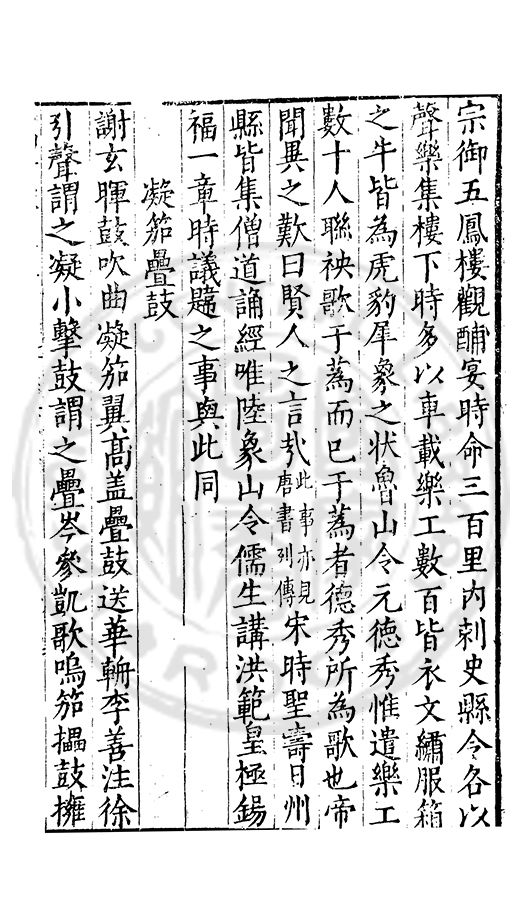 宗御五鳳樓觀酺宴時命三百里內刺史縣令各以
聲樂集樓下時多以車載樂工數百皆衣文繡服箱
之牛皆為虎豹犀象之状魯山令元德秀惟遣樂工
數十人聯袂歌于蔿而已于蔿者德秀所為歌也帝
聞異之歎曰賢人之言㢤此事亦見唐書列傳宋時聖壽日州
縣皆集僧道誦經唯陸象山令儒生講洪範皇極錫
福一章時議韙之事與此同
凝笳疊鼓
謝玄暉鼓吹曲凝笳翼髙盖疊鼓送華輈李善注徐
引聲謂之凝小擊鼓謂之疊岑參凱歌嗚笳攂鼓擁